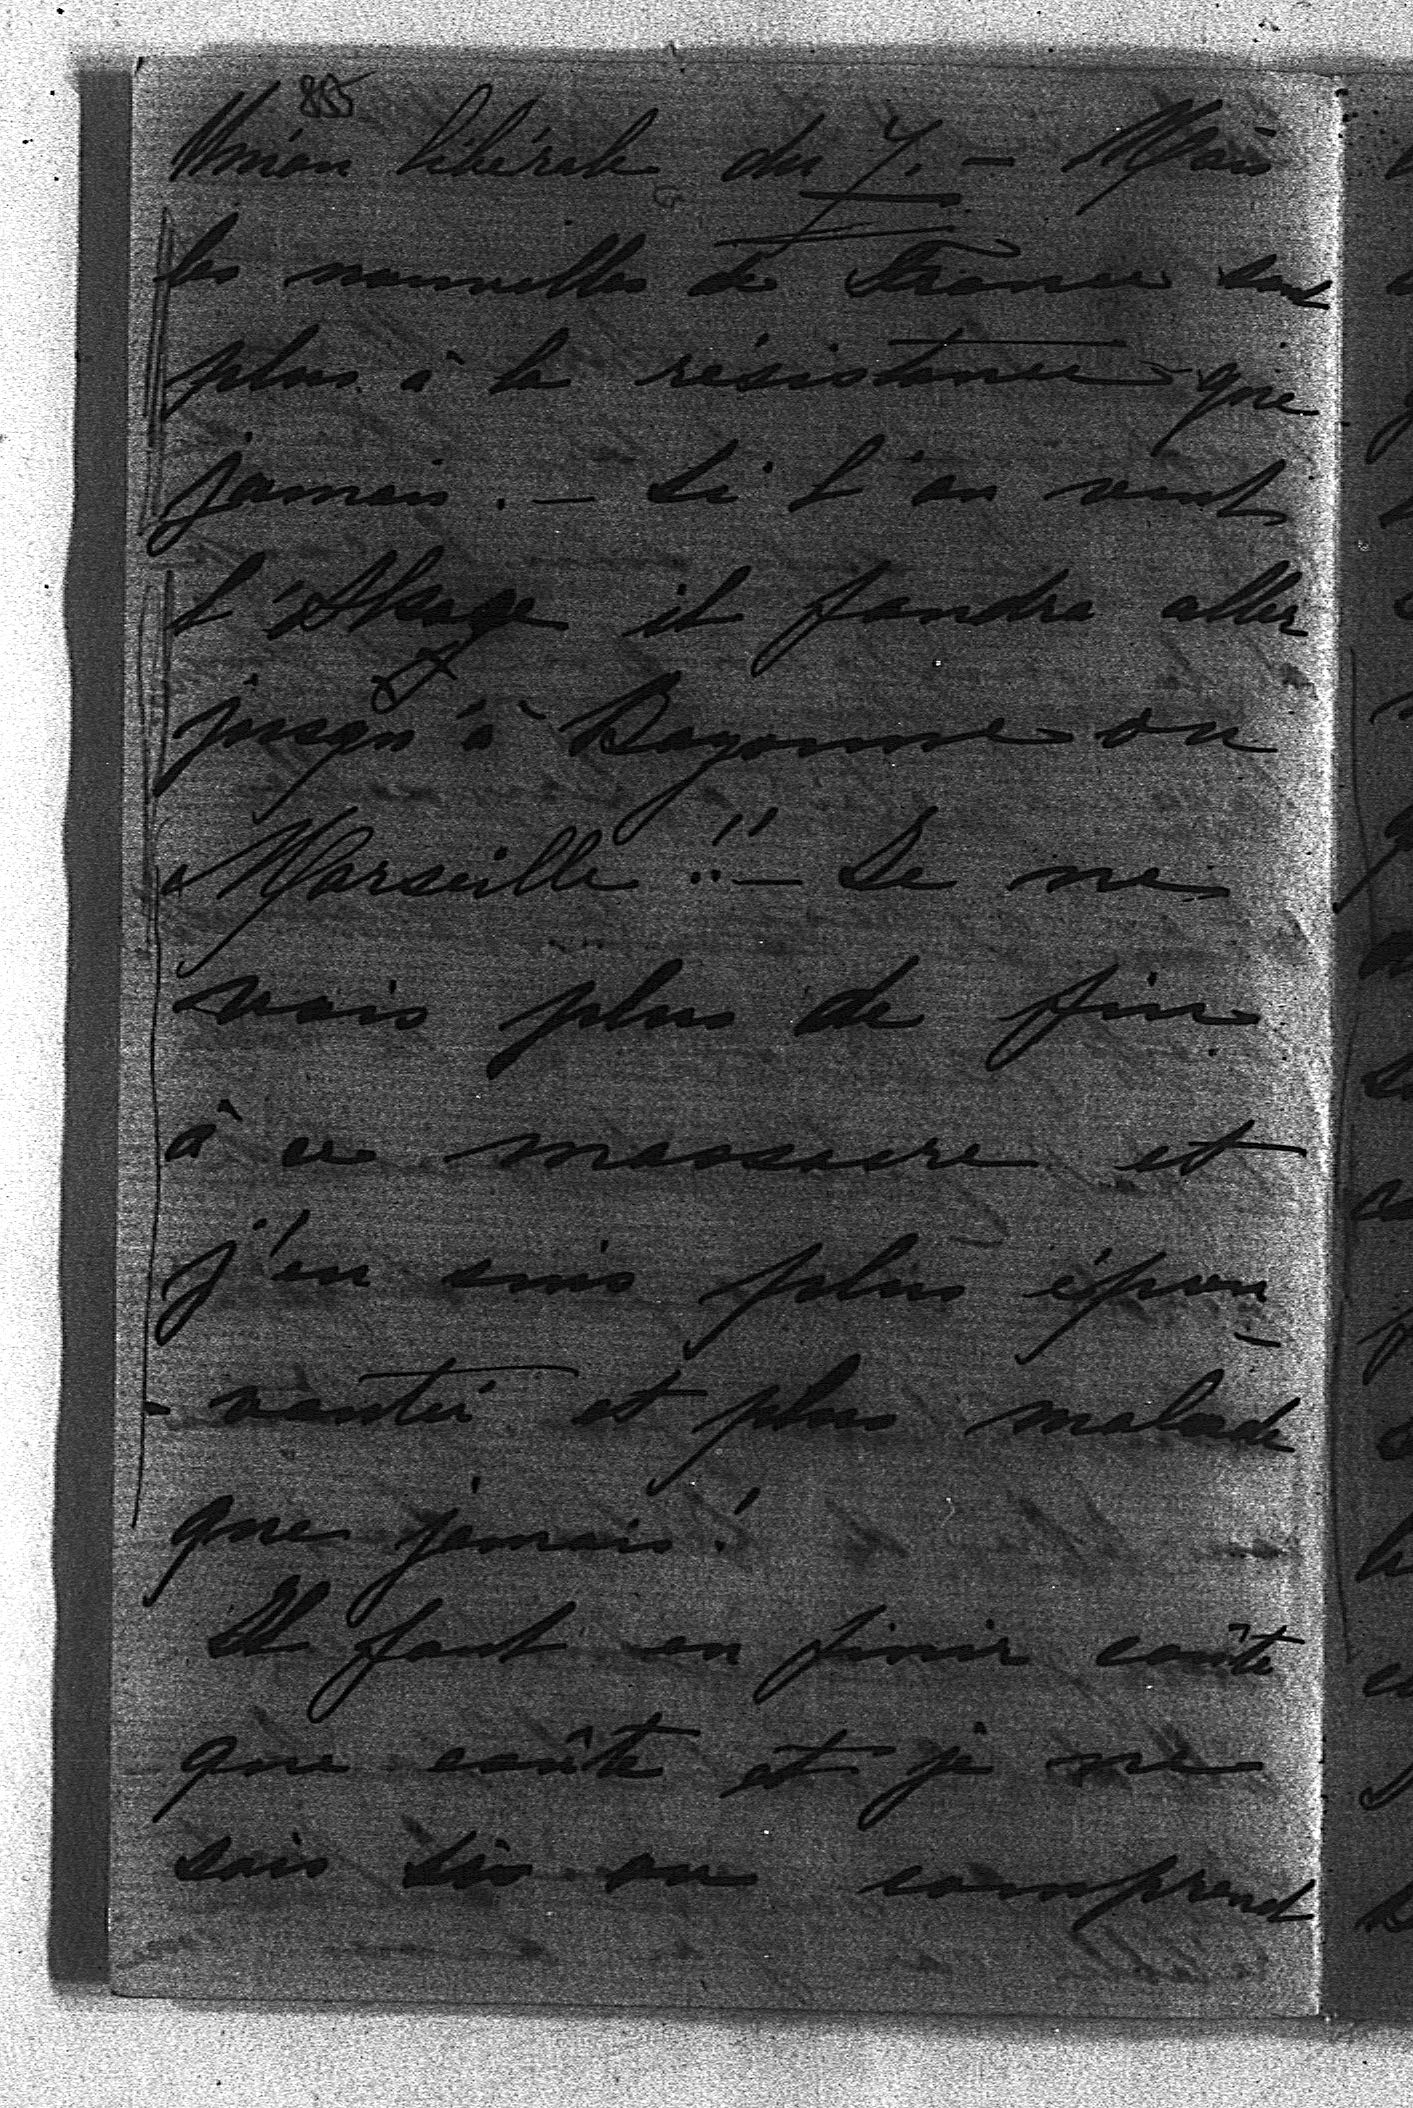 885
Union libérale du 7. – Mais
les nouvelles de France sont
plus à la résistance que
jamais. – Si l'on veut
l'Alsace il faudra aller
jusqu'à Bayonne ou
Marseille!! – Je ne
vois plus de fin
à ce massacre et
j'en suis plus épou
-vanté et plus malade
que jamais!
Il faut en finir coûte
que coûte et je ne
sais si on comprend